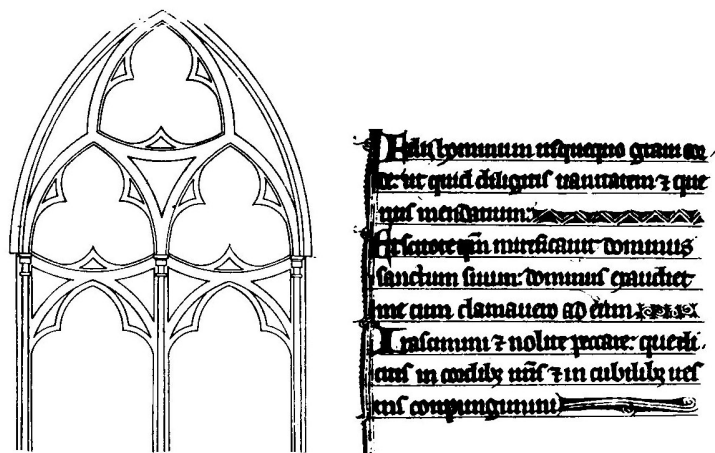 Filii hominum usquequo graui cor
de: ut quid diligitis uanitatem ⁊ que
ritis mendatium:
Et scitote qm̄ mirificauit dominus
sanctum suum: dominus exaudiet
me cum clamauero ad eum
Irascimini ⁊ nolite peccare: que di
citis in cordibꝫ ur̄is ⁊ in cubilibꝫ ues
tris compungimini